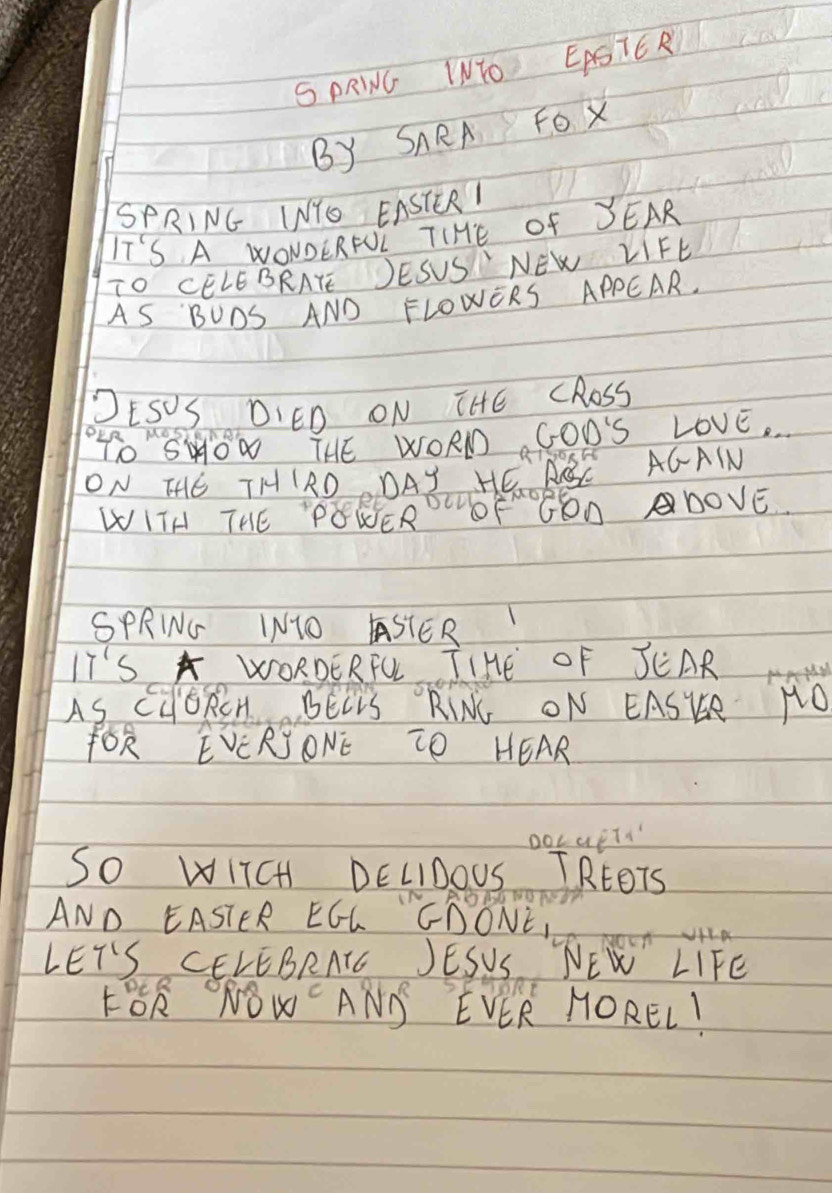 SPRING INTO EASTER
BY SARA FOX
SPRING INTO EASTER!
IT'S A WONDERFUL TIME OF YEAR
TO CELEBRATE JESUS' NEW LIFE
AS BUDS AND FLOWERS APPEAR.
JESUS DIED ON THE CROSS
PER MOSTRARE
TO SHOW THE WORD GOD'S LOVE...
RISORGE
ON THE THIRD DAY HE ROSE AGAIN
POTERE DELL'AMORE
WITH THE POWER OF GOD ABOVE.
SPRING INTO EASTER!
IT'S A WORDERFUL TIME OF YEAR
CHIESA
AS CHURCH BELLS RING ON EASTER MO
PER
FOR EVERYONE TO HEAR
DOLCETTI
SO WITCH DELIDOUS TREOTS
IN ABBONDANZA
AND EASTER EGG GDONE,
LA NOVA VITA
LET'S CELEBRATE JESUS NEW LIFE
PER ORA E PER SEMPRE
FOR NOW AND EVER MOREL!